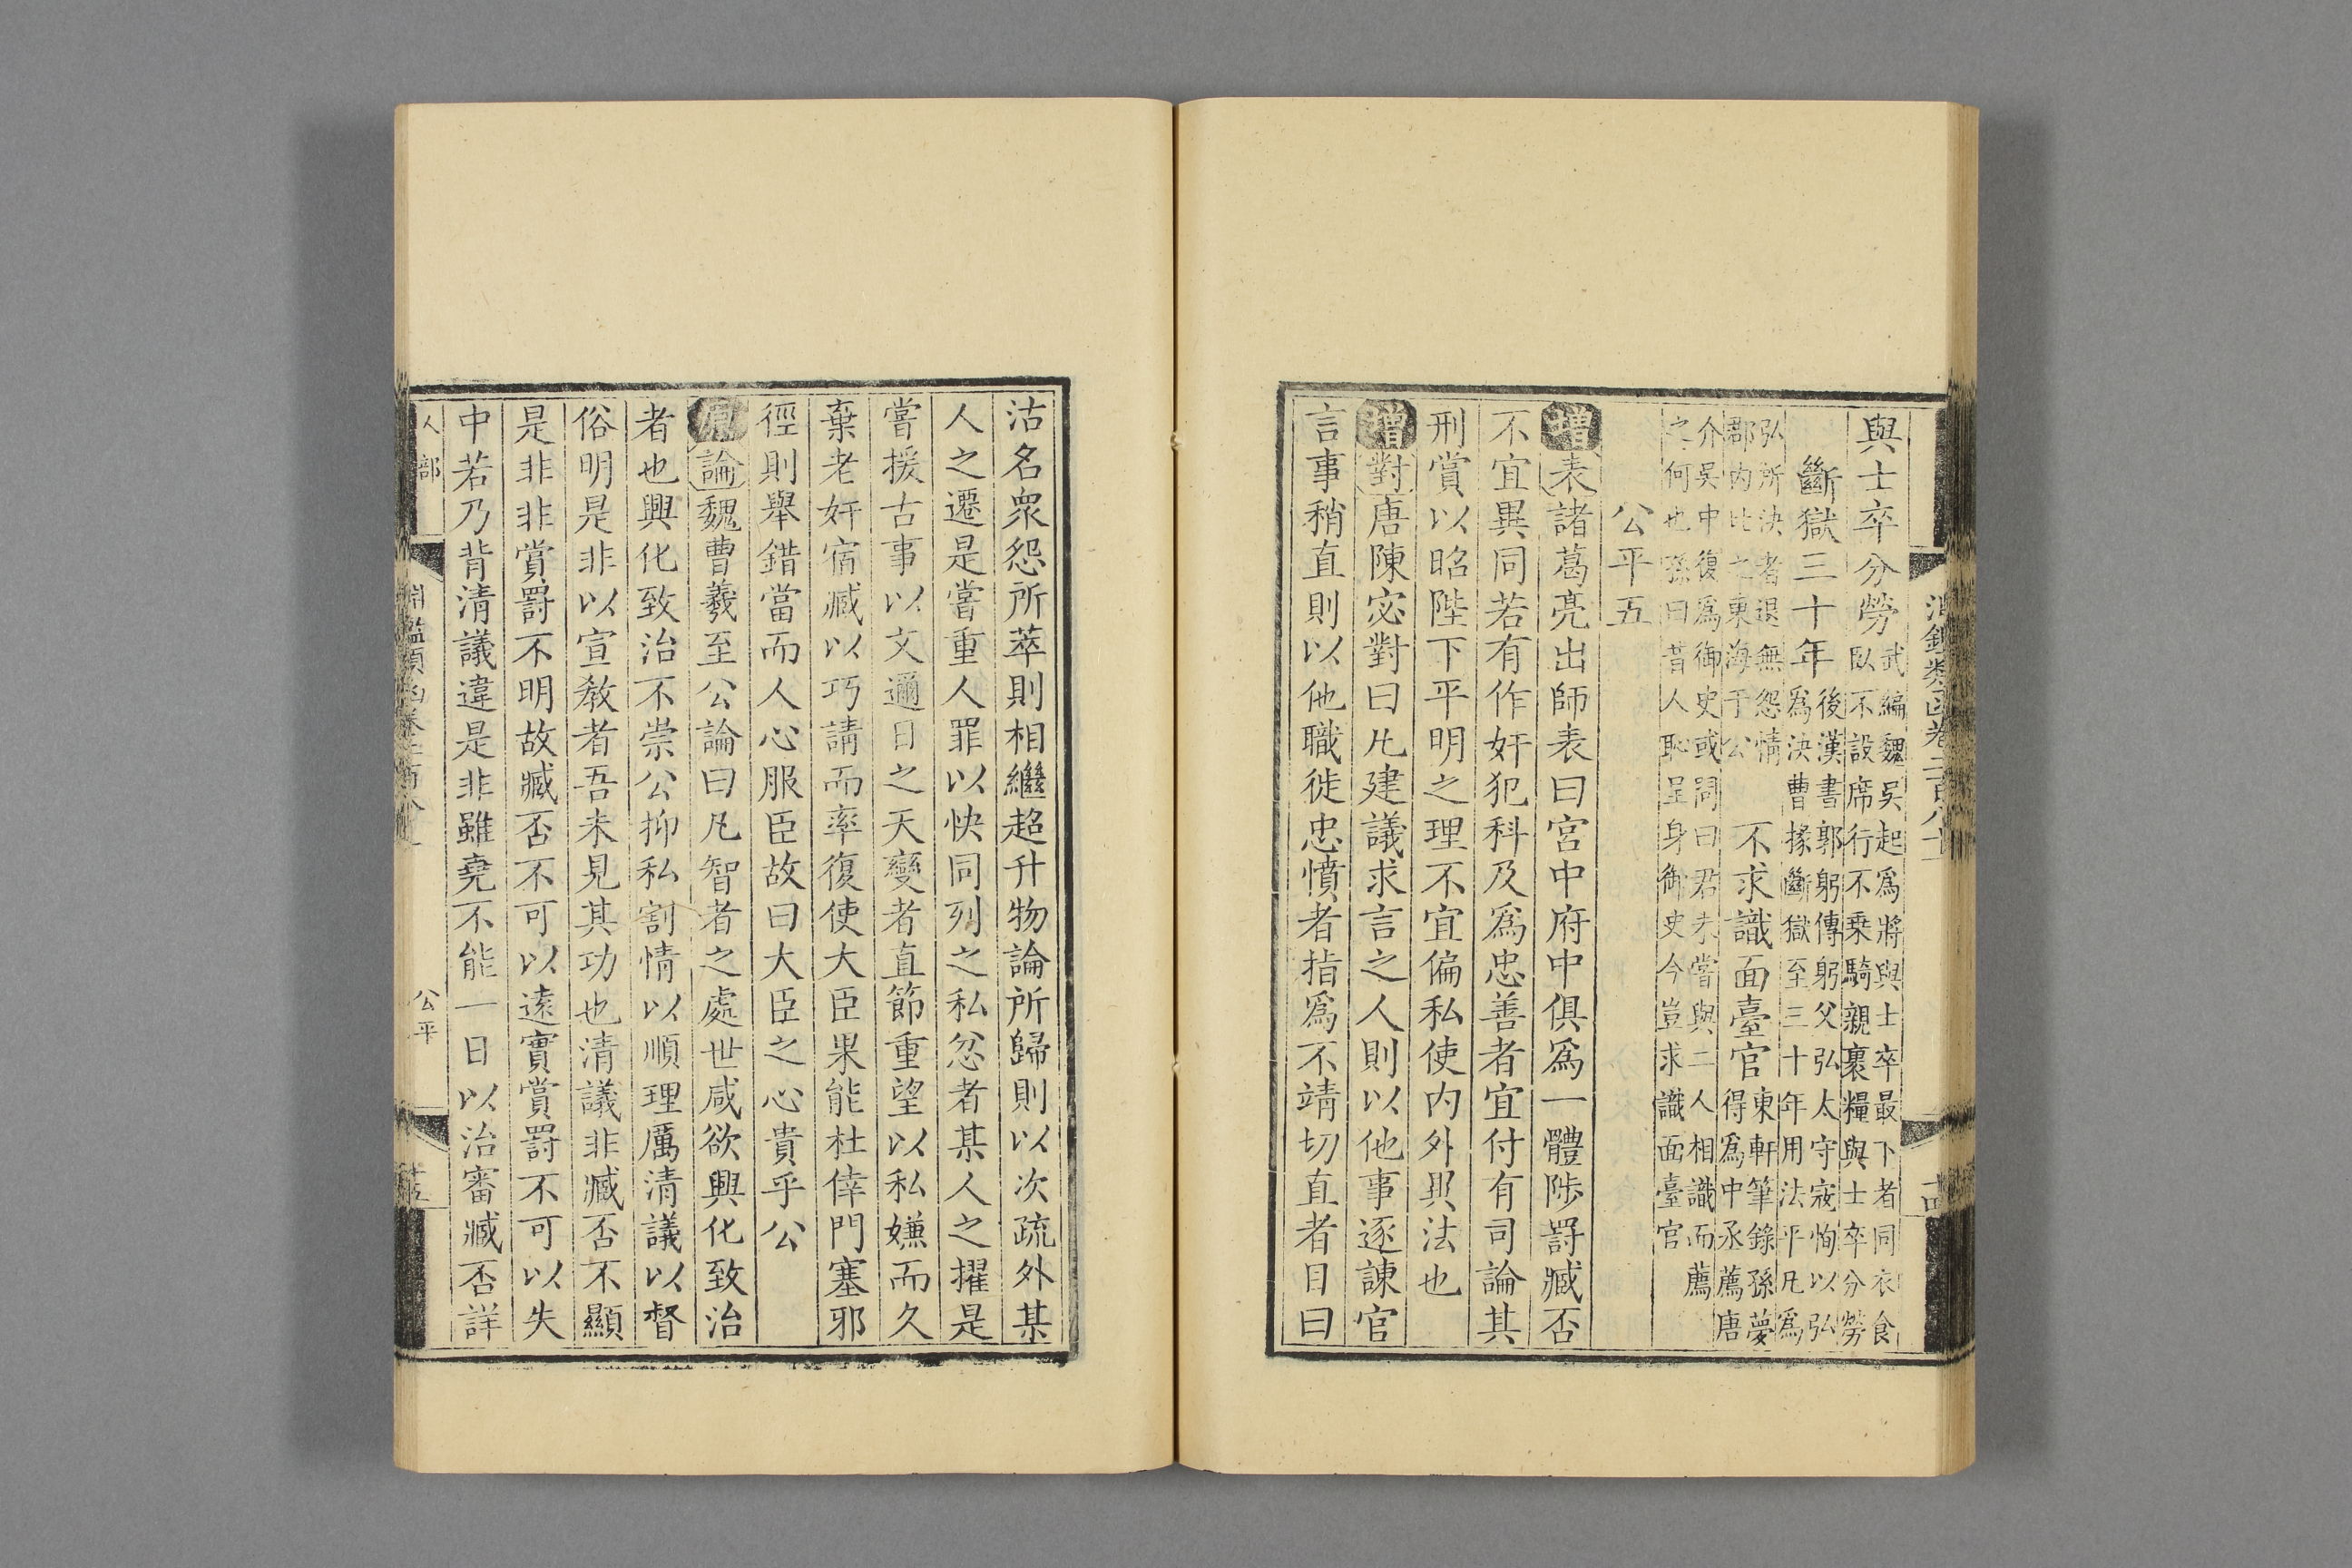 與士卒分勞武編魏吳起爲將與士卒最下者同衣食臥不設席行不乗騎親裹糧與士卒分勞
斷獄三十年後漢書郭躬傳躬父弘太守寇恂以弘爲決曹掾斷獄至三十年用法平凡爲
弘所決者退無怨情郡内比之東海于公不求識面臺官東軒筆錄孫夢得爲中丞薦唐
介吳中復爲御史或問曰君未嘗與二人相識而薦之何也孫曰昔人恥呈身御史今豈求識面臺官
公平五
增表諸葛亮出師表曰宮中府中俱爲一體陟罰臧否
不宜異同若有作奸犯科及爲忠善者宜付有司論其
刑賞以昭陛下平明之理不宜偏私使内外異法也
增對唐陳宓對曰凡建議求言之人則以他事逐諫官
言事稍直則以他職徙忠憤者指爲不靖切直者目曰
沽名衆怨所萃則相繼超升物論所歸則以次疏外某
人之遷是嘗重人罪以快同列之私忿者某人之擢是
嘗援古事以文邇日之天變者直節重望以私嫌而久
棄老奸宿臧以巧請而率復使大臣果能杜倖門塞邪
徑則舉錯當而人心服臣故曰大臣之心貴乎公
原論魏曹羲至公論曰凡智者之處世咸欲興化致治
者也興化致治不崇公抑私割情以順理厲清議以督
俗明是非以宣教者吾未見其功也清議非臧否不顯
是非非賞罰不明故臧否不可以遠實賞罰不可以失
中若乃背清議違是非雖堯不能一日以治審臧否詳
人部
公平